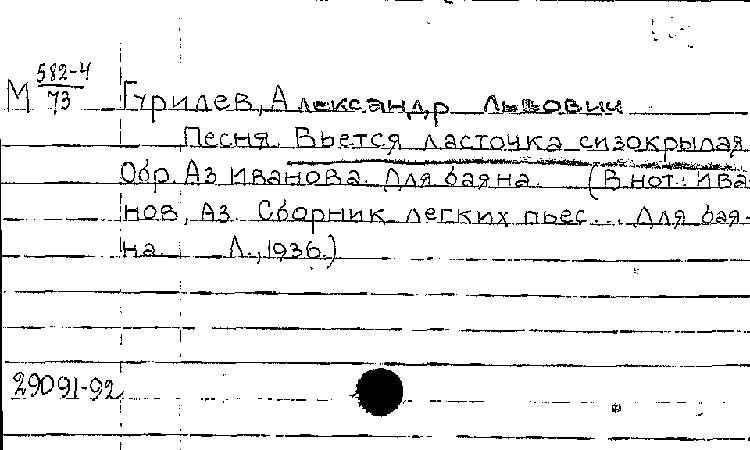 М 582-4/73 Гурилев, Александр Львович
Песня. Вьется ласточка сизокрылая
Обр. Аз Иванова. Для баяна. (В нот.: Ива-
нов, Аз. Сборник легких пьес... Для бая-
на. Л., 1936.)
29091-92